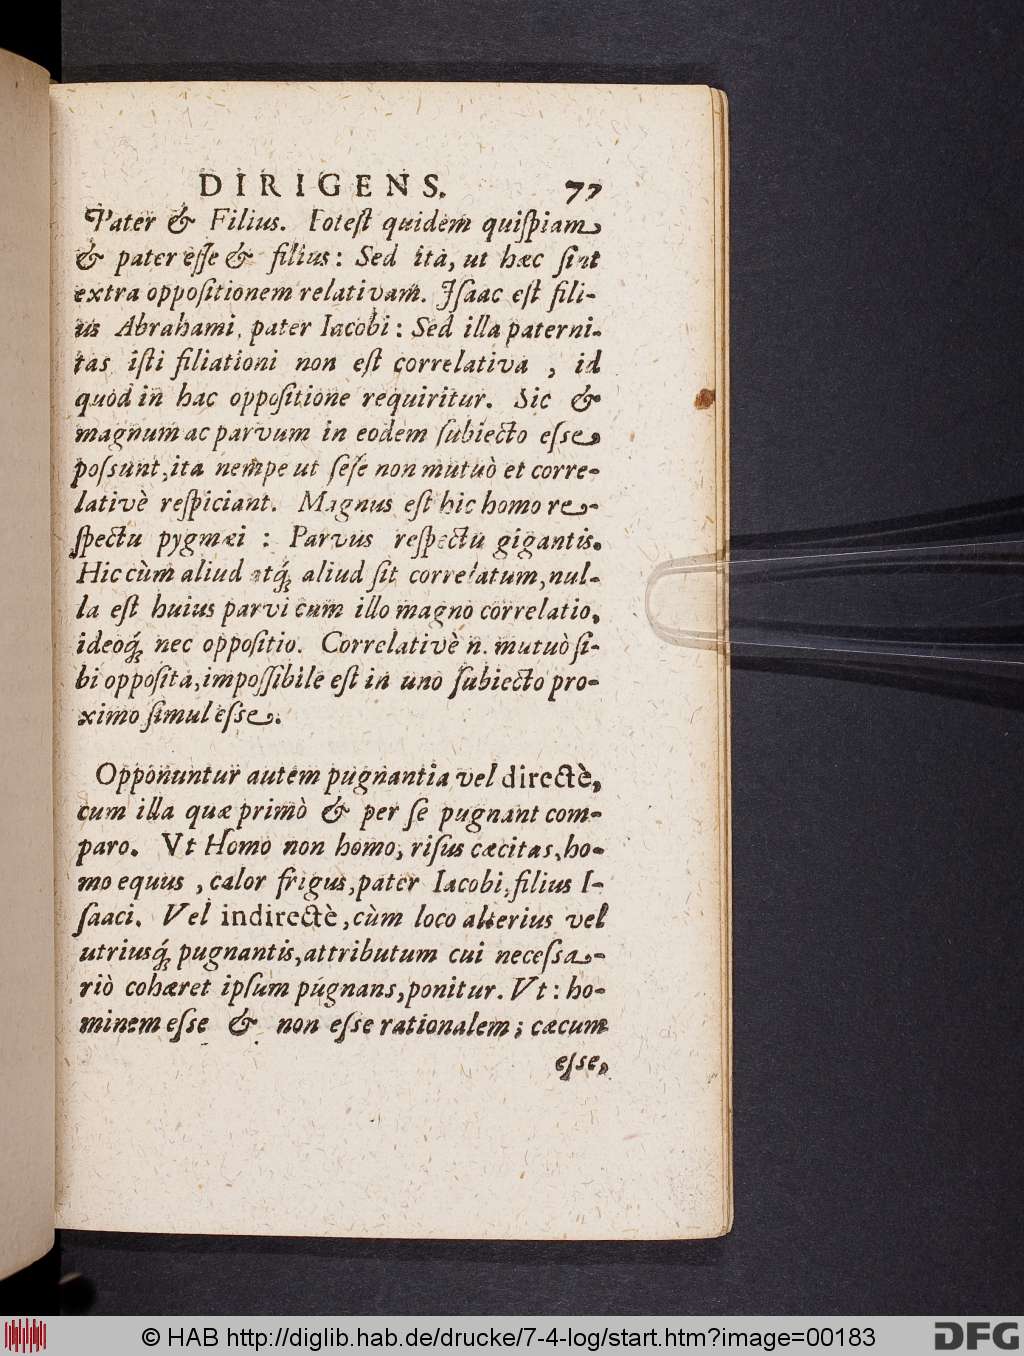 DIRIGENS. 77
Pater & Filius. Potest quidem quiſpiam
& pater eſſe & filius: Sed ita, ut hæc ſint
extra oppoſitionem relativam. Iſaac eſt fili-
us Abrahami, pater Iacobi: Sed illa paterni-
tas iſti filiationi non eſt correlativa, id
quod in hac oppoſitione requiritur. Sic &
magnum ac parvum in eodem ſubiecto eſse
poſsunt, ita nempe ut ſeſe non mutuò et corre-
lativè reſpiciant. Magnus eſt hic homo re-
ſpectu pygmæi: Parvus reſpectu gigantis.
Hic cùm aliud atq́; aliud ſit correlatum, nul-
la eſt huius parvi cum illo magno correlatio,
ideoq́; nec oppoſitio. Correlativè n. mutuò ſi-
bi oppoſita, impoſſibile eſt in uno ſubiecto pro-
ximo ſimul eſse.
Opponuntur autem pugnantia vel directè,
cum illa quæ primò & per ſe pugnant com-
paro. Vt Homo non homo, riſus cæcitas, ho-
mo equus, calor frigus, pater Iacobi, filius I-
ſaaci. Vel indirectè, cùm loco alterius vel
utriusq́; pugnantis, attributum cui neceſsa-
riò cohæret ipſum pugnans, ponitur. Vt: ho-
minem eſse & non eſse rationalem; cæcum
eſse,
© HAB http://diglib.hab.de/drucke/7-4-log/start.htm?image=00183
DFG